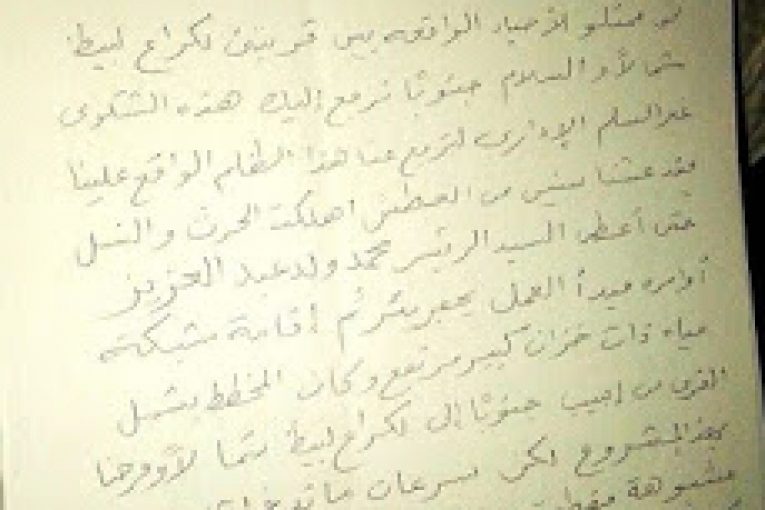 نحن ممثلو الأحياء الواقعة بين قريتين لكراع لبيظ
شمالا و السلام جنوبا نرفع إليك هذه الشكوى
عبر السلم الإداري لترفع عنا هذا الظلم الواقع علينا
فقد عشنا سنين من العطش أهلكت الحرث والنسل
حتى أعطى السيد الرئيس محمد ولد عبد العزيز
أوامره فبدأ العمل بحفر بئر ثم إقامة شبكة
مياه ذات خزان كبير مرتفع وكان المخطط يشمل
القرى من إجيب جنوبا إلى لكراع لبيظ شمالا وفرحنا
بهذا المشروع لكن سرعان ما
مشبوهة